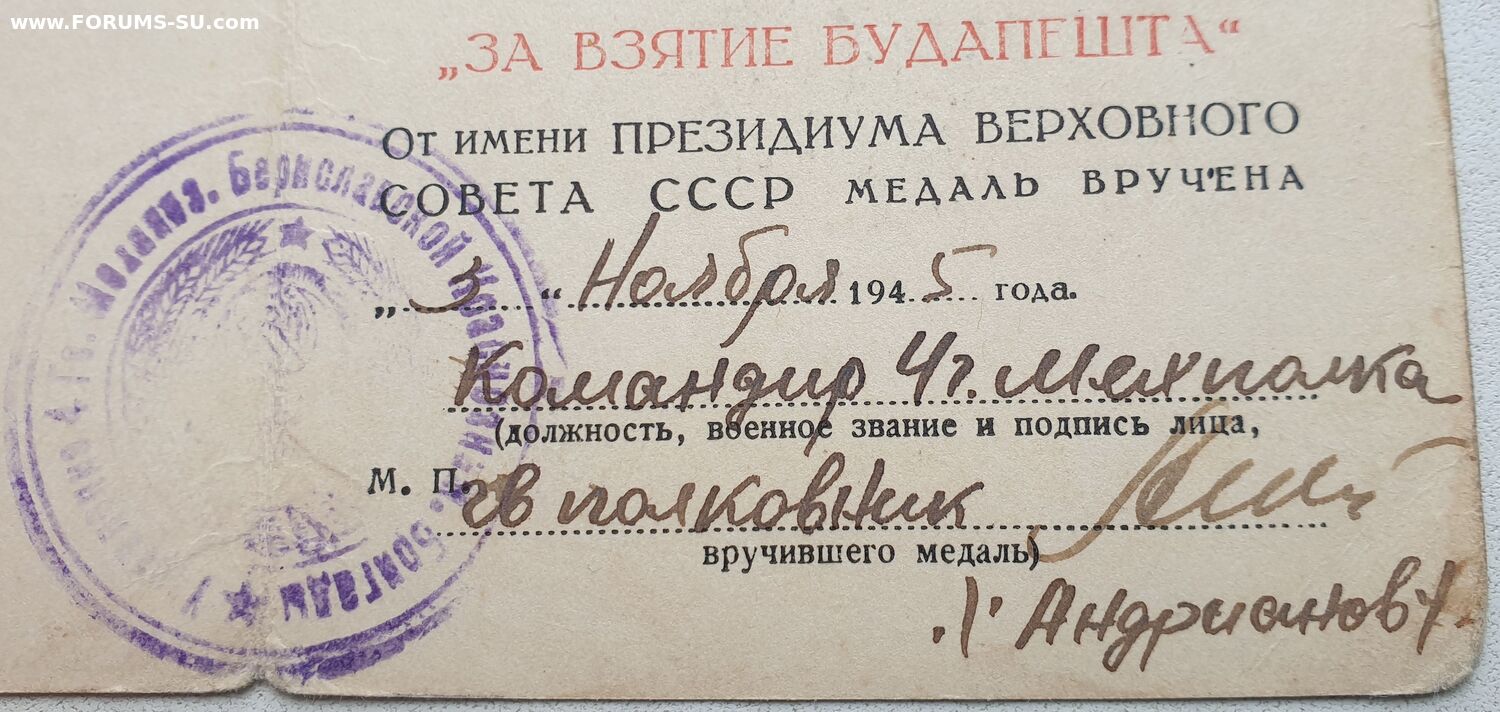 www.FORUMS-SU.com
„ЗА ВЗЯТИЕ БУДАПЕШТА“
От имени ПРЕЗИДИУМА ВЕРХОВНОГО
СОВЕТА СССР МЕДАЛЬ ВРУЧЕНА
„3“ Ноября 1945 года.
Командир 4 г. Мехполка
(должность, военное звание и подпись лица,
М. П.
гв полковник
вручившего медаль)
/Андрианов/
4 Гв. Механиз. Бериславской Краснознам. Бригады